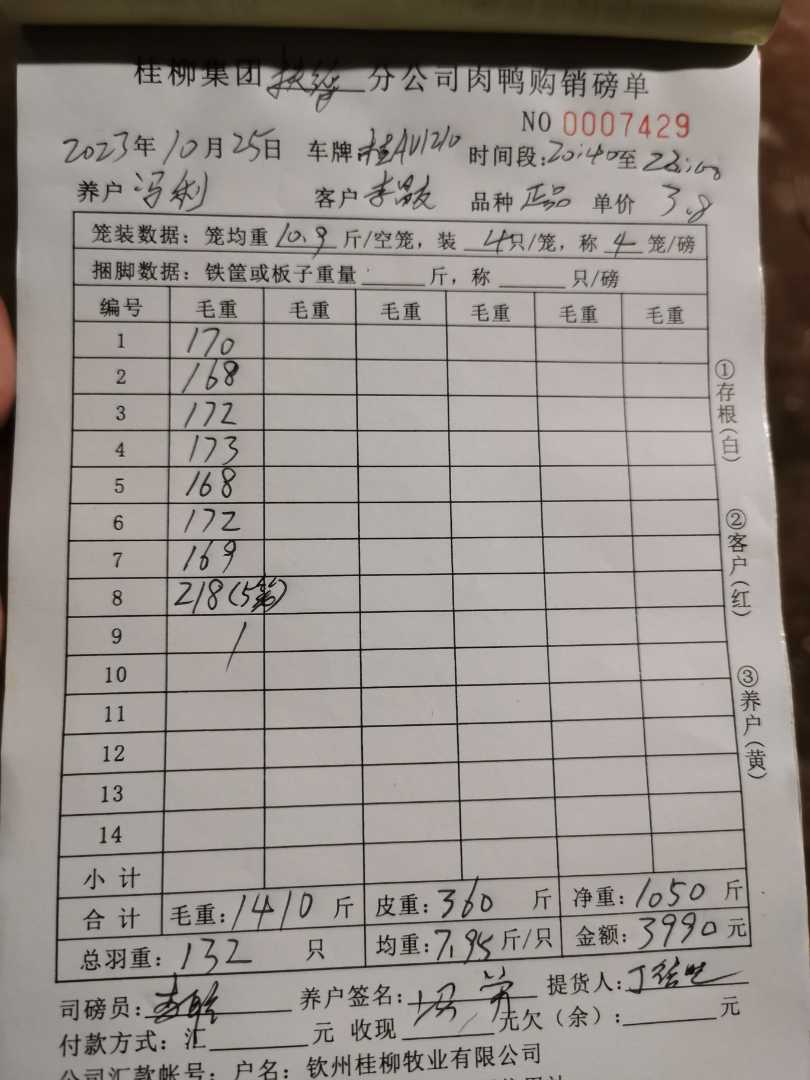 桂柳集团扶绥分公司肉鸭购销磅单
NO 0007429
2023年10月25日 车牌:桂AU1210 时间段:20:40至22:00
养户 冯利 客户 李 品种 正品 单价 3.8
笼装数据: 笼均重 10.9 斤/空笼, 装 4只/笼, 称 4 笼/磅
捆脚数据: 铁筐或板子重量 斤, 称 只/磅
编号 毛重 毛重 毛重 毛重 毛重 毛重
1 170
2 168
3 172
4 173
5 168
6 172
7 169
8 218(5笼)
9 /
10
11
12
13
14
小计
合计 毛重:1410 斤 皮重:360 斤 净重:1050 斤
总羽重: 132 只 均重:7.95斤/只 金额:3990元
司磅员: 养户签名: 提货人:
付款方式: 汇 元 收现 元欠(余): 元
公司汇款帐号: 户名: 钦州桂柳牧业有限公司
①存根(白)
②客户(红)
③养户(黄)